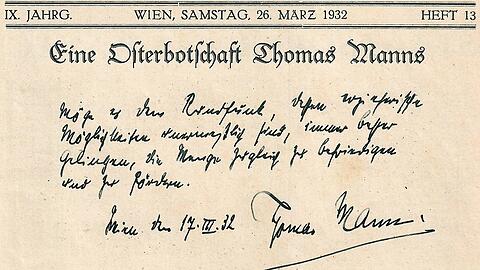 IX. JAHRG. WIEN, SAMSTAG, 26. MÄRZ 1932 HEFT 13
Eine Osterbotschaft Thomas Manns
Möge es dem Rundfunk, dessen erzieherische
Möglichkeiten unermesslich sind, immer besser
gelingen, die Menge zugleich zu befriedigen
und zu fördern.
Wien den 17. III. 32 Thomas Mann.